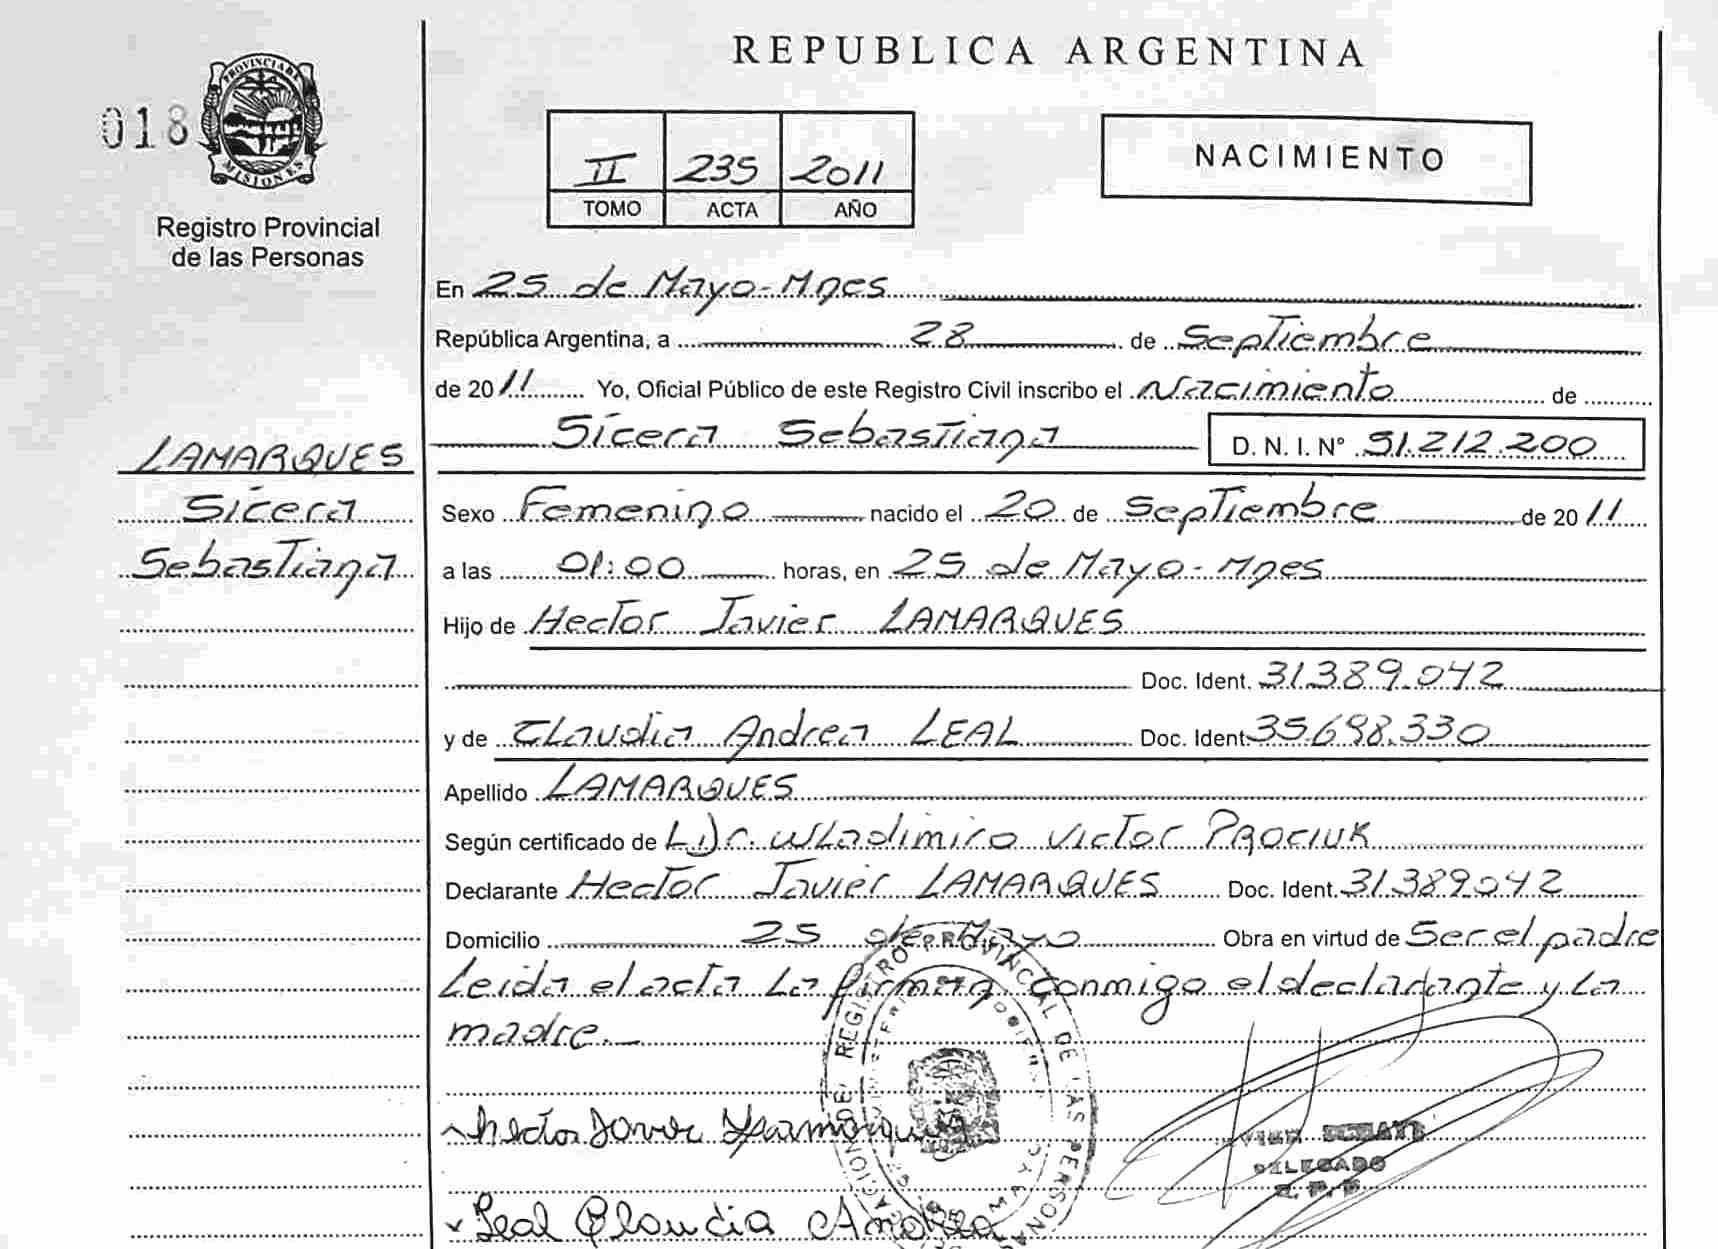 REPUBLICA ARGENTINA
018
PROVINCIA DE MISIONES
Registro Provincial
de las Personas
II 235 2011
TOMO ACTA AÑO
NACIMIENTO
En 25 de Mayo-Mnes
República Argentina, a 28 de Septiembre
de 2011 Yo, Oficial Público de este Registro Civil inscribo el Nacimiento de
Sícera Sebastiana D. N. I. N° 51.212.200
LAMARQUES
Sícera
Sebastiana
Sexo Femenino nacido el 20 de Septiembre de 2011
a las 01:00 horas, en 25 de Mayo-Mnes
Hijo de Hector Javier LAMARQUES
Doc. Ident. 31.389.042
y de Claudia Andrea LEAL Doc. Ident. 35.698.330
Apellido LAMARQUES
Según certificado de Dr. Wladimiro Victor PROCIUK
Declarante Hector Javier LAMARQUES Doc. Ident. 31.389.042
Domicilio 25 de Mayo Obra en virtud de Ser el padre
Leida el acta La firman conmigo el declarante y La
madre.
REGISTRO PROVINCIAL DE LAS PERSONAS
Hector Javier
DELEGADO
R. P. P.
Leal Claudia Andrea